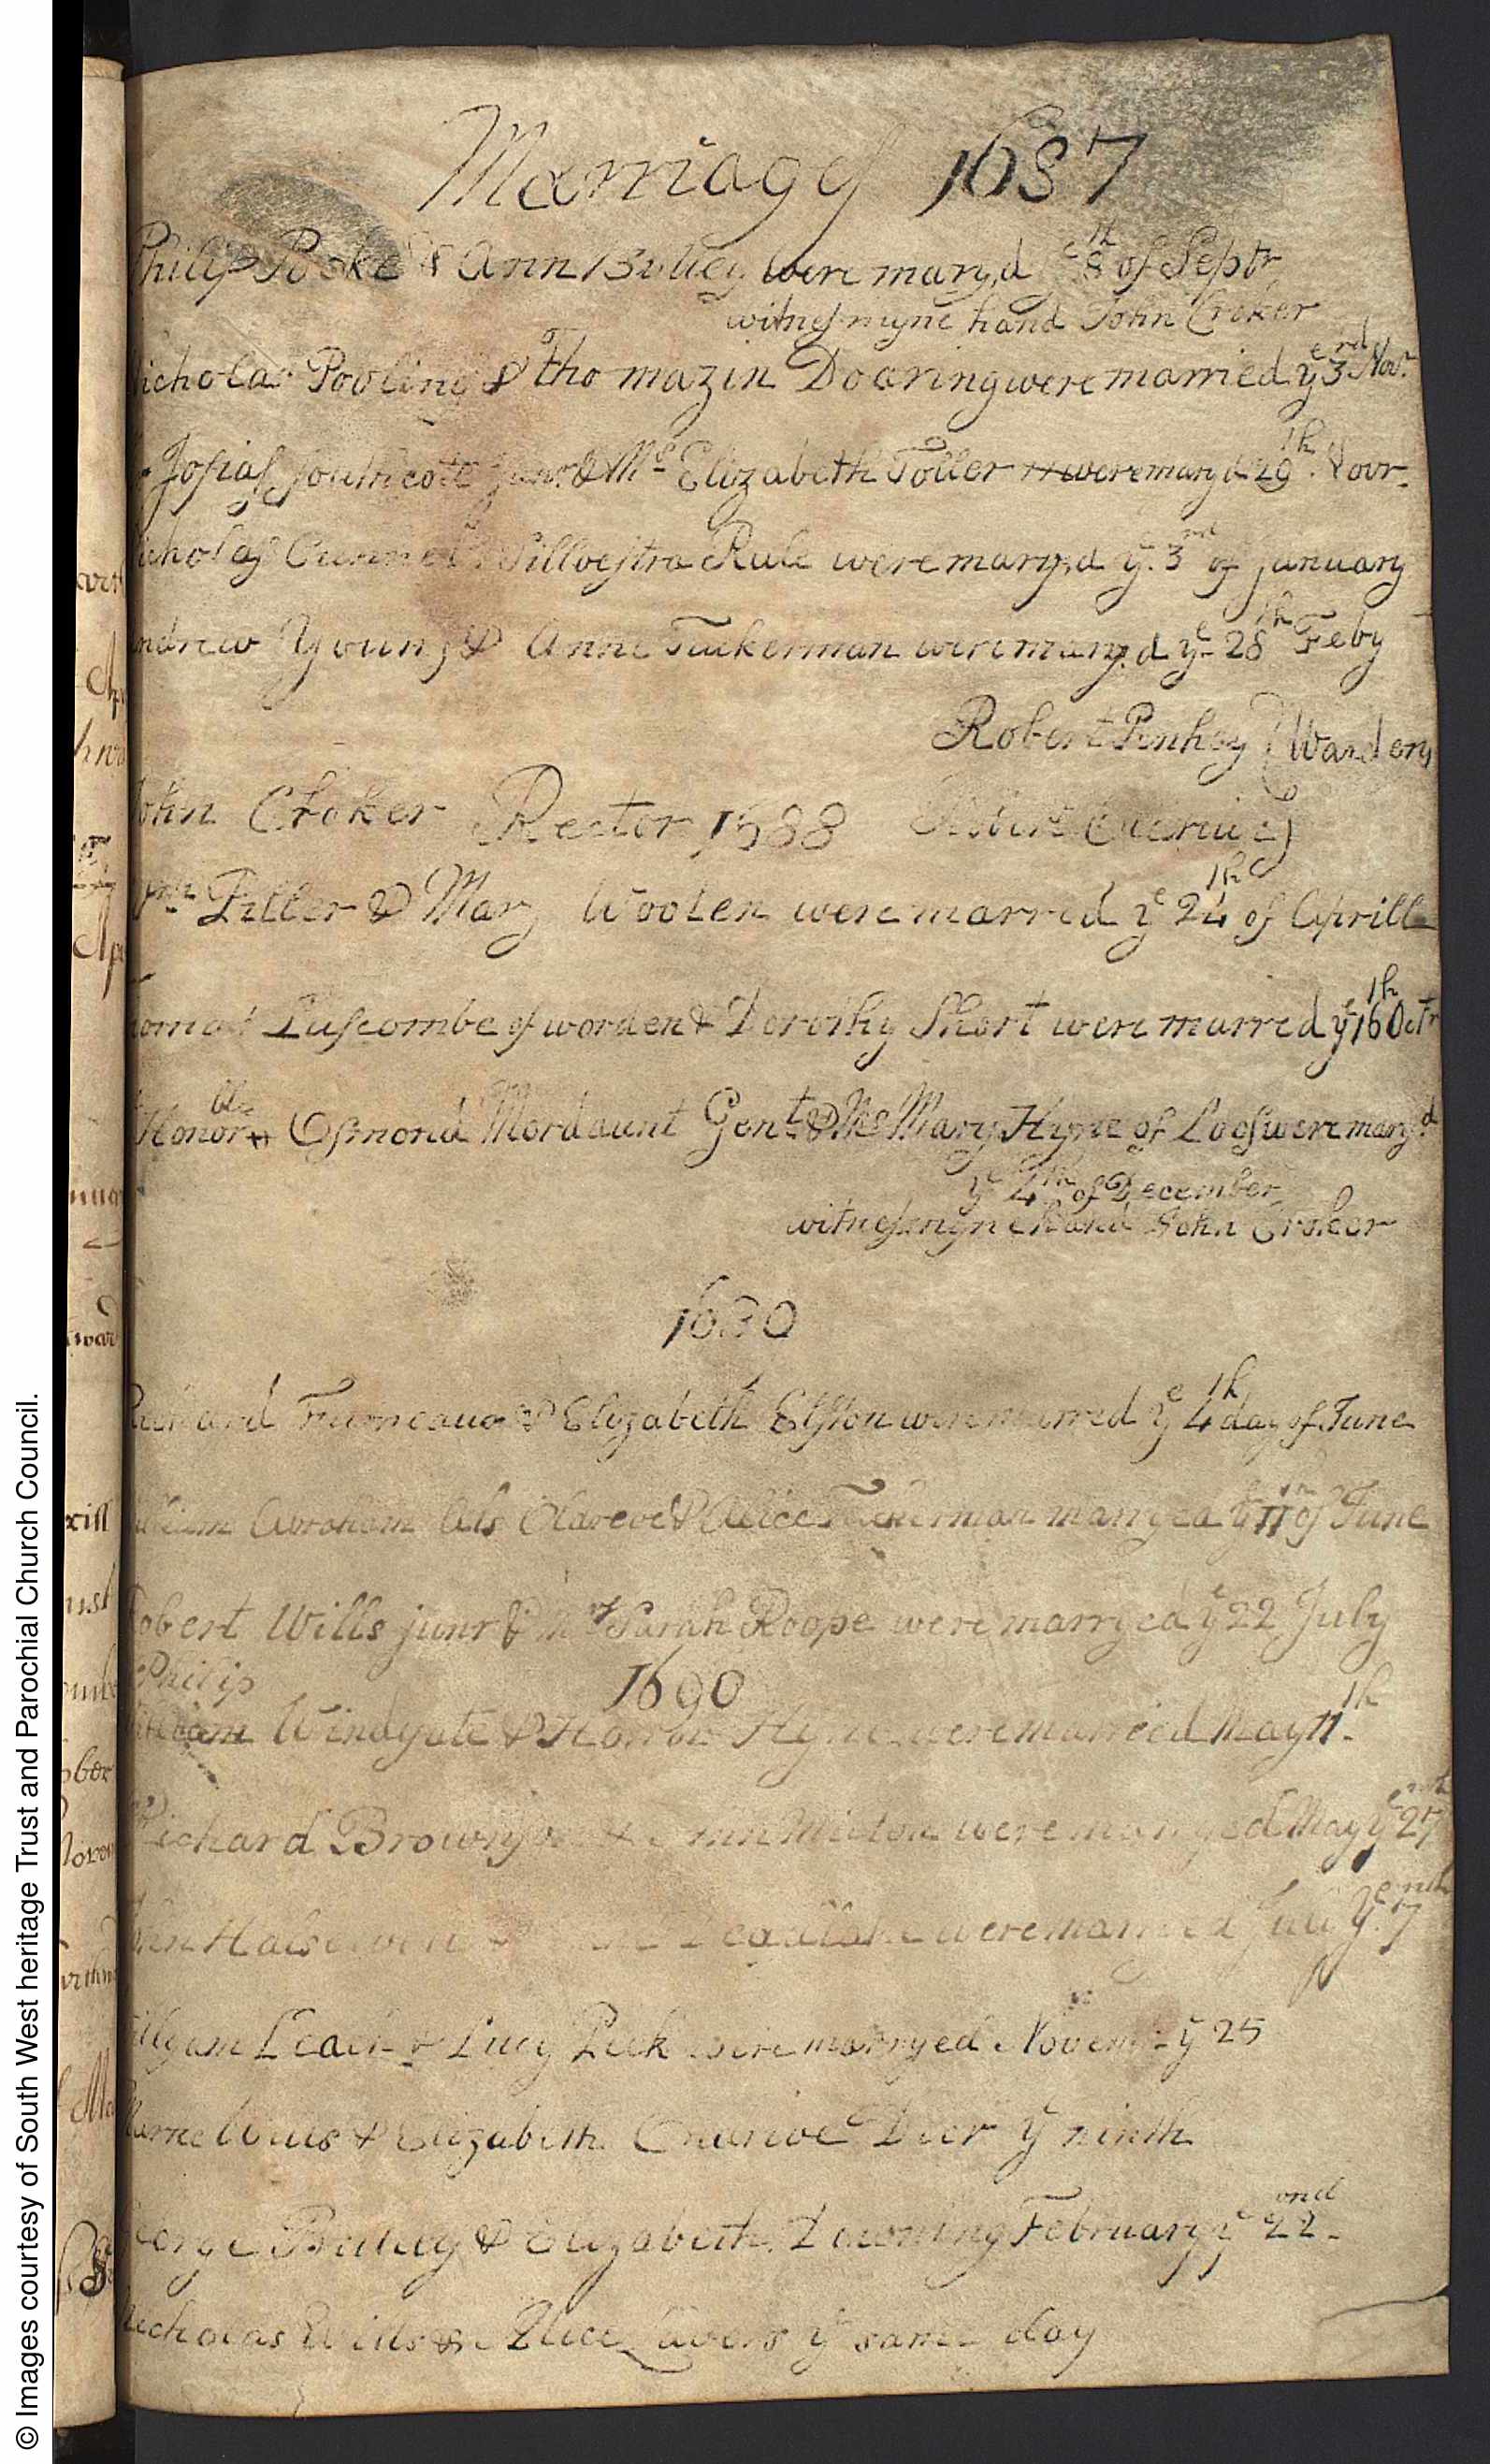 Marriages 1687
Philip Pooke & Ann were mary,d ye 8th of Septr
witnes myne hand John Croker
icholas Pooling & Thomazin Dooring were married ye 3rd Novr
Josias Southcote Junr & Ms Elizabeth Toller were mary d 29th Novr
icholas Sillvestra Rule were mary,d ye 3rd of January
ndrew Young & Anne Tuckerman were mary,d ye 28th Feby
Robert Penhey Wardens
John Croker Rector 1688 Robert
Wm Piller & Mary Woolen were marred ye 24th of Aprill
homas Luscombe of worden & Dorothy Short were marred ye 16th Octr
Honorble Osmond Mordaunt Gent & Ms Mary Hyne of Loos were mary,d
ye 4th of December
witnes myne hand John Croker
1689
Richard Furneaux & Elizabeth Elston were marred ye 4th day of June
illiam Abraham Als & Alice Tuckerman marryed ye 11th of June
obert Wills junr & Mrs Sarah Roope were marryed ye 22 July
Philip
1690
William Windyate & Honor Hyne were married May 11th
Richard Brown & Ann were marryed May ye 27th
John were marryed July ye 7th
illyam Leach & Lucy Peek were marryed Novem ye 25
Wills & Elizabeth Decr ye ninth
eorge & Elizabeth Downing February ye 22ond
icholas Wills & Alice Lavers ye same day
© Images courtesy of South West heritage Trust and Parochial Church Council.